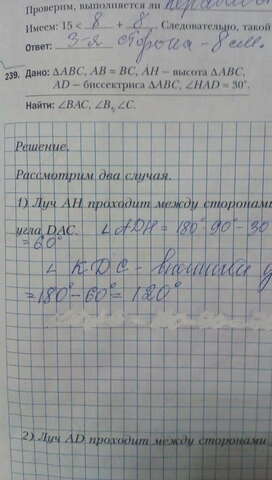 Проверим, выполняется ли
Имеем: 15 < 8 + 8. Следовательно, такой
Ответ: 3-я сторона - 8 см.
239. Дано: ΔABC, AB = BC, AH – высота ΔABC,
AD – биссектриса ΔABC, ∠HAD = 30°.
Найти: ∠BAC, ∠B, ∠C.
Решение.
Рассмотрим два случая.
1) Луч AH проходит между сторонами
угла DAC. ∠ADH = 180° - 90° - 30
= 60°
∠KDC -
= 180° - 60° = 120°
2) Луч AD проходит между сторонами